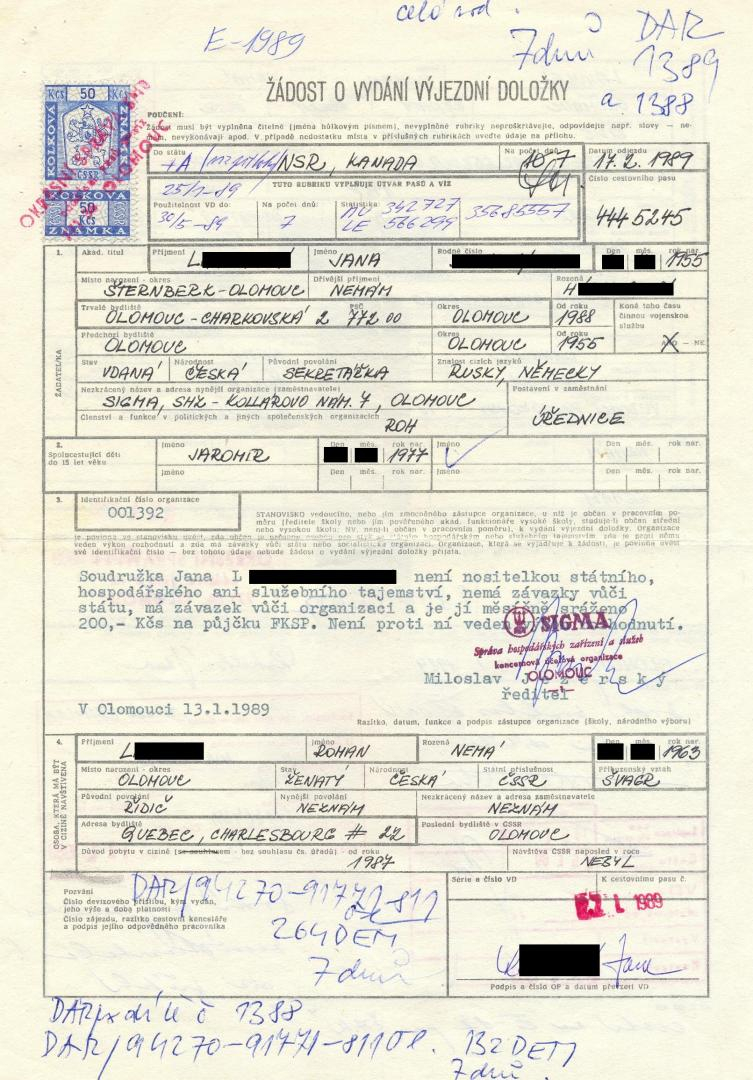 celé rod.
E-1989
DAR
7dnů 1389
a 1388
ŽÁDOST O VYDÁNÍ VÝJEZDNÍ DOLOŽKY
Kčs 50
KOLKOVÁ
ZNÁMKA
ČSSR
KOLKOVÁ
50
Kčs
ZNÁMKA
POUČENÍ:
Žádost musí být vyplněna čitelně (jména hůlkovým písmem), nevyplněné rubriky neproškrtávejte, odpovídejte např. slovy — ne-
mám, nevykonávají apod. V případě nedostatku místa v příslušných rubrikách uveďte údaje na přílohu.
Do státu Na počet dnů Datum odjezdu
+A NSR, KANADA 7 17.2. 1989
25/1-89 TUTO RUBRIKU VYPLŇUJE ÚTVAR PASŮ A VÍZ Číslo cestovního pasu
Použitelnost VD do: Na počet dnů: Statistika:
30/5-89 7 MU 342727 35685557
LE 566299
4445245
1. Akad. titul Příjmení Jméno Rodné číslo Den měs. rok nar.
L JANA 1955
Místo narození - okres Dřívější příjmení Rozená
ŠTERNBERK-OLOMOUC NEMÁM H
Trvalé bydliště PSČ Okres Od roku Koná toho času
OLOMOUC-CHARKOVSKÁ 2 772 00 OLOMOUC 1988 činnou vojenskou
službu
Předchozí bydliště Okres Od roku
OLOMOUC OLOMOUC 1955 ANO — NE
Stav Národnost Původní povolání Znalost cizích jazyků
VDANÁ ČESKÁ SEKRETÁŘKA RUSKY, NĚMECKY
Nezkrácený název a adresa nynější organizace (zaměstnavatele) Postavení v zaměstnání
SIGMA, SHZ-KOLLÁROVO NÁM. 7, OLOMOUC
Členství a funkce v politických a jiných společenských organizacích
ROH ÚŘEDNICE
ŽADATEL/KA
2. Jméno Den měs. rok nar. Jméno Den měs. rok nar.
Spolucestující děti
do 15 let věku
JAROMÍR 1977
Jméno Jméno
3. Identifikační číslo organizace
001392
STANOVISKO vedoucího, nebo jím zmocněného zástupce organizace, u níž je občan v pracovním po-
měru (ředitele školy nebo jím pověřeného akad. funkcionáře vysoké školy, studuje-li občan střední
nebo vysokou školu; NV, není-li občan v pracovním poměru), k vydání výjezdní doložky. Organizace
je povinna ve stanovisku uvést, zda občan je určenou osobou pro styk se státním hospodářským nebo služebním tajemstvím, zda je proti němu
veden výkon rozhodnutí a zda má závazky vůči státu nebo socialistické organizaci. Organizace, která se vyjadřuje k žádosti, je povinna uvést
své identifikační číslo — bez tohoto údaje nebude žádost o vydání výjezdní doložky přijata.
Soudružka Jana L není nositelkou státního,
hospodářského ani služebního tajemství, nemá závazky vůči
státu, má závazek vůči organizaci a je jí měsíčně sráženo
200,- Kčs na půjčku FKSP. Není proti ní veden rozhodnutí.
SIGMA
Správa hospodářských zařízení a služeb
koncernová účelová organizace
OLOMOUC
-1-
Miloslav Jezerský
ředitel
V Olomouci 13.1.1989
Razítko, datum, funkce a podpis zástupce organizace (školy, národního výboru)
4. Příjmení Jméno Rozená Den měs. rok nar.
L ROMAN NEMÁ 1963
Místo narození - okres Stav Národnost Státní příslušnost Příbuzenský vztah
OLOMOUC ŽENATÝ ČESKÁ ČSSR ŠVAGR
Původní povolání Nynější povolání Nezkrácený název a adresa zaměstnavatele
ŘIDIČ NEZNÁM NEZNÁM
Adresa bydliště Poslední bydliště v ČSSR
QUEBEC, CHARLESBOURG # 22 OLOMOUC
Důvod pobytu v cizině (se souhlasem - bez souhlasu čs. úřadů) - od roku Návštěva ČSSR naposled v roce
1987 NEBYL
OSOBA, KTERÁ MÁ BÝT
V CIZINĚ NAVŠTÍVENA
Pozvání
Číslo devizového příslibu, kým vydán,
jeho výše a doba platnosti
Číslo zájezdu, razítko cestovní kanceláře
a podpis jejího odpovědného pracovníka
DAR/94270-91771-811
Ol
264 DEM
7 dnů
Série a číslo VD K cestovnímu pasu č.
1989
Jana
Podpis a číslo OP a datum převzetí VD
DAR/x dítě č 1388
DAR/94270-91771-811 Ol. 132 DEM
7 dnů.